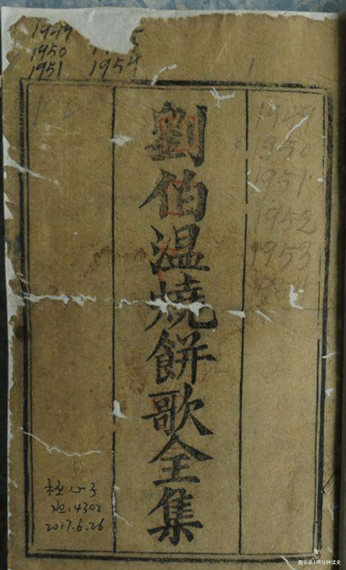 1949
1950
1951 1954
劉伯温燒餅歌全集
1949
1950
1951
1952
1953
2017.6.26